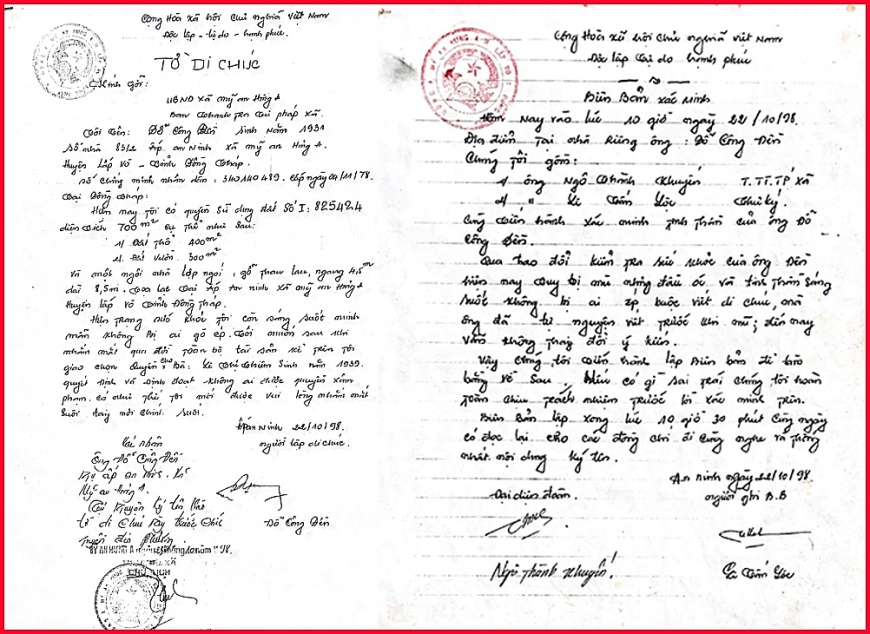 Cộng Hoà xã hội Chủ nghĩa Việt Nam
Độc lập - tự do - hạnh phúc
TỜ DI CHÚC
Kính gởi:
UBND xã mỹ an Hưng A
Ban thanh tra tư pháp xã.
Tôi tên: Đỗ Công Đến Sinh Năm 1931
Số nhà 83/2 ấp. an Ninh xã mỹ an Hưng A.
Huyện Lấp Vò - Đồng Tháp.
Số chứng minh nhân dân: 340140489. cấp ngày 04/11/78.
Tại Đồng Tháp:
Hiện nay tôi có quyền sử dụng đất Số I: 825424
diện tích 700m² cụ thể như sau:
1/ Đất thổ 400m²
2/ Đất vườn 300m²
Và một ngôi nhà lợp ngói, gỗ thao lao, ngang 4,5m
dài 8,5m. Tọa lạc tại ấp an ninh xã mỹ an Hưng A
Huyện lấp vò tỉnh Đồng Tháp.
Hiện trạng sức khỏe tôi còn sáng suốt minh
mẫn không bị ai gò ép. Tôi muốn sau khi
nhắm mắt qua đời toàn bộ tài sản kể trên tôi
giao trọn quyền cho Bà: Lê Thị Sinh năm 1939.
quyết định và định đoạt không ai được quyền xâm
phạm. có như thế tôi mới được vui lòng nhắm mắt
Suối
An Ninh 22/10/98.
người lập di chúc.
Xác nhận
Ông Đỗ Công Đến
ấp an Ninh xã
Mỹ an Hưng A.
tờ di chúc này
Đỗ Công Đến
CHỦ TỊCH
Cộng Hoà xã hội Chủ nghĩa Việt Nam
Độc lập Tự do hạnh phúc
Biên Bản xác minh
Hôm Nay vào lúc 10 giờ ngày 22/10/98.
Địa điểm tại nhà Riêng ông: Đỗ Công Đến
Chúng tôi gồm:
1/ ông Ngô Thành Khuyến T.TT.TP xã
2/ " Lê Tấn Lộc Thư ký.
Cùng tiến hành xác minh tinh thần của ông Đỗ
Công Đến.
Qua trao đổi kiểm tra sức khỏe của ông Đến
hiện nay tuy bị mù nhưng đầu óc và tinh thần sáng
suốt không bị ai ép buộc viết di chúc, mà
ông đã tự nguyện viết trước khi mù; đến nay
vẫn không thay đổi ý kiến.
Vậy chúng tôi tiến hành lập Biên bản để
bằng về sau. Nếu có gì sai trái chúng tôi hoàn
toàn chịu trách nhiệm trước lời xác minh trên.
Biên Bản lập xong lúc 10 giờ 30 phút cùng ngày
có đọc lại cho các đồng chí đi cùng nghe và thống
nhất nội dung ký tên.
An ninh ngày 22/10/98.
Đại diện đoàn.
người ghi B.B
Ngô Thành Khuyến.
Lê Tấn Lộc